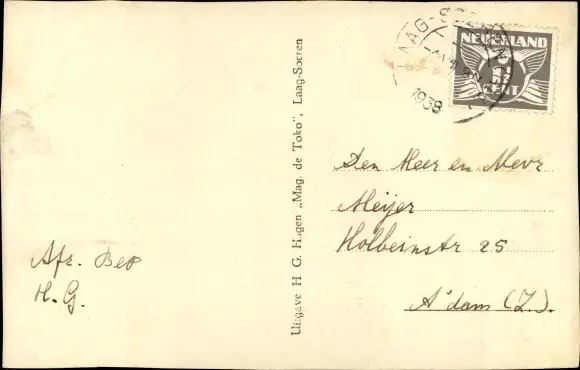 LAAG-SOEREN
1938
NEDERLAND
1½
CENT
Den Heer en Mevr
Meijer
Holbeinstr 25
A'dam (Z.).
Afz. Bep
H. G.
Uitgave H. G. Hagen „Mag. de Toko”, Laag-Soeren